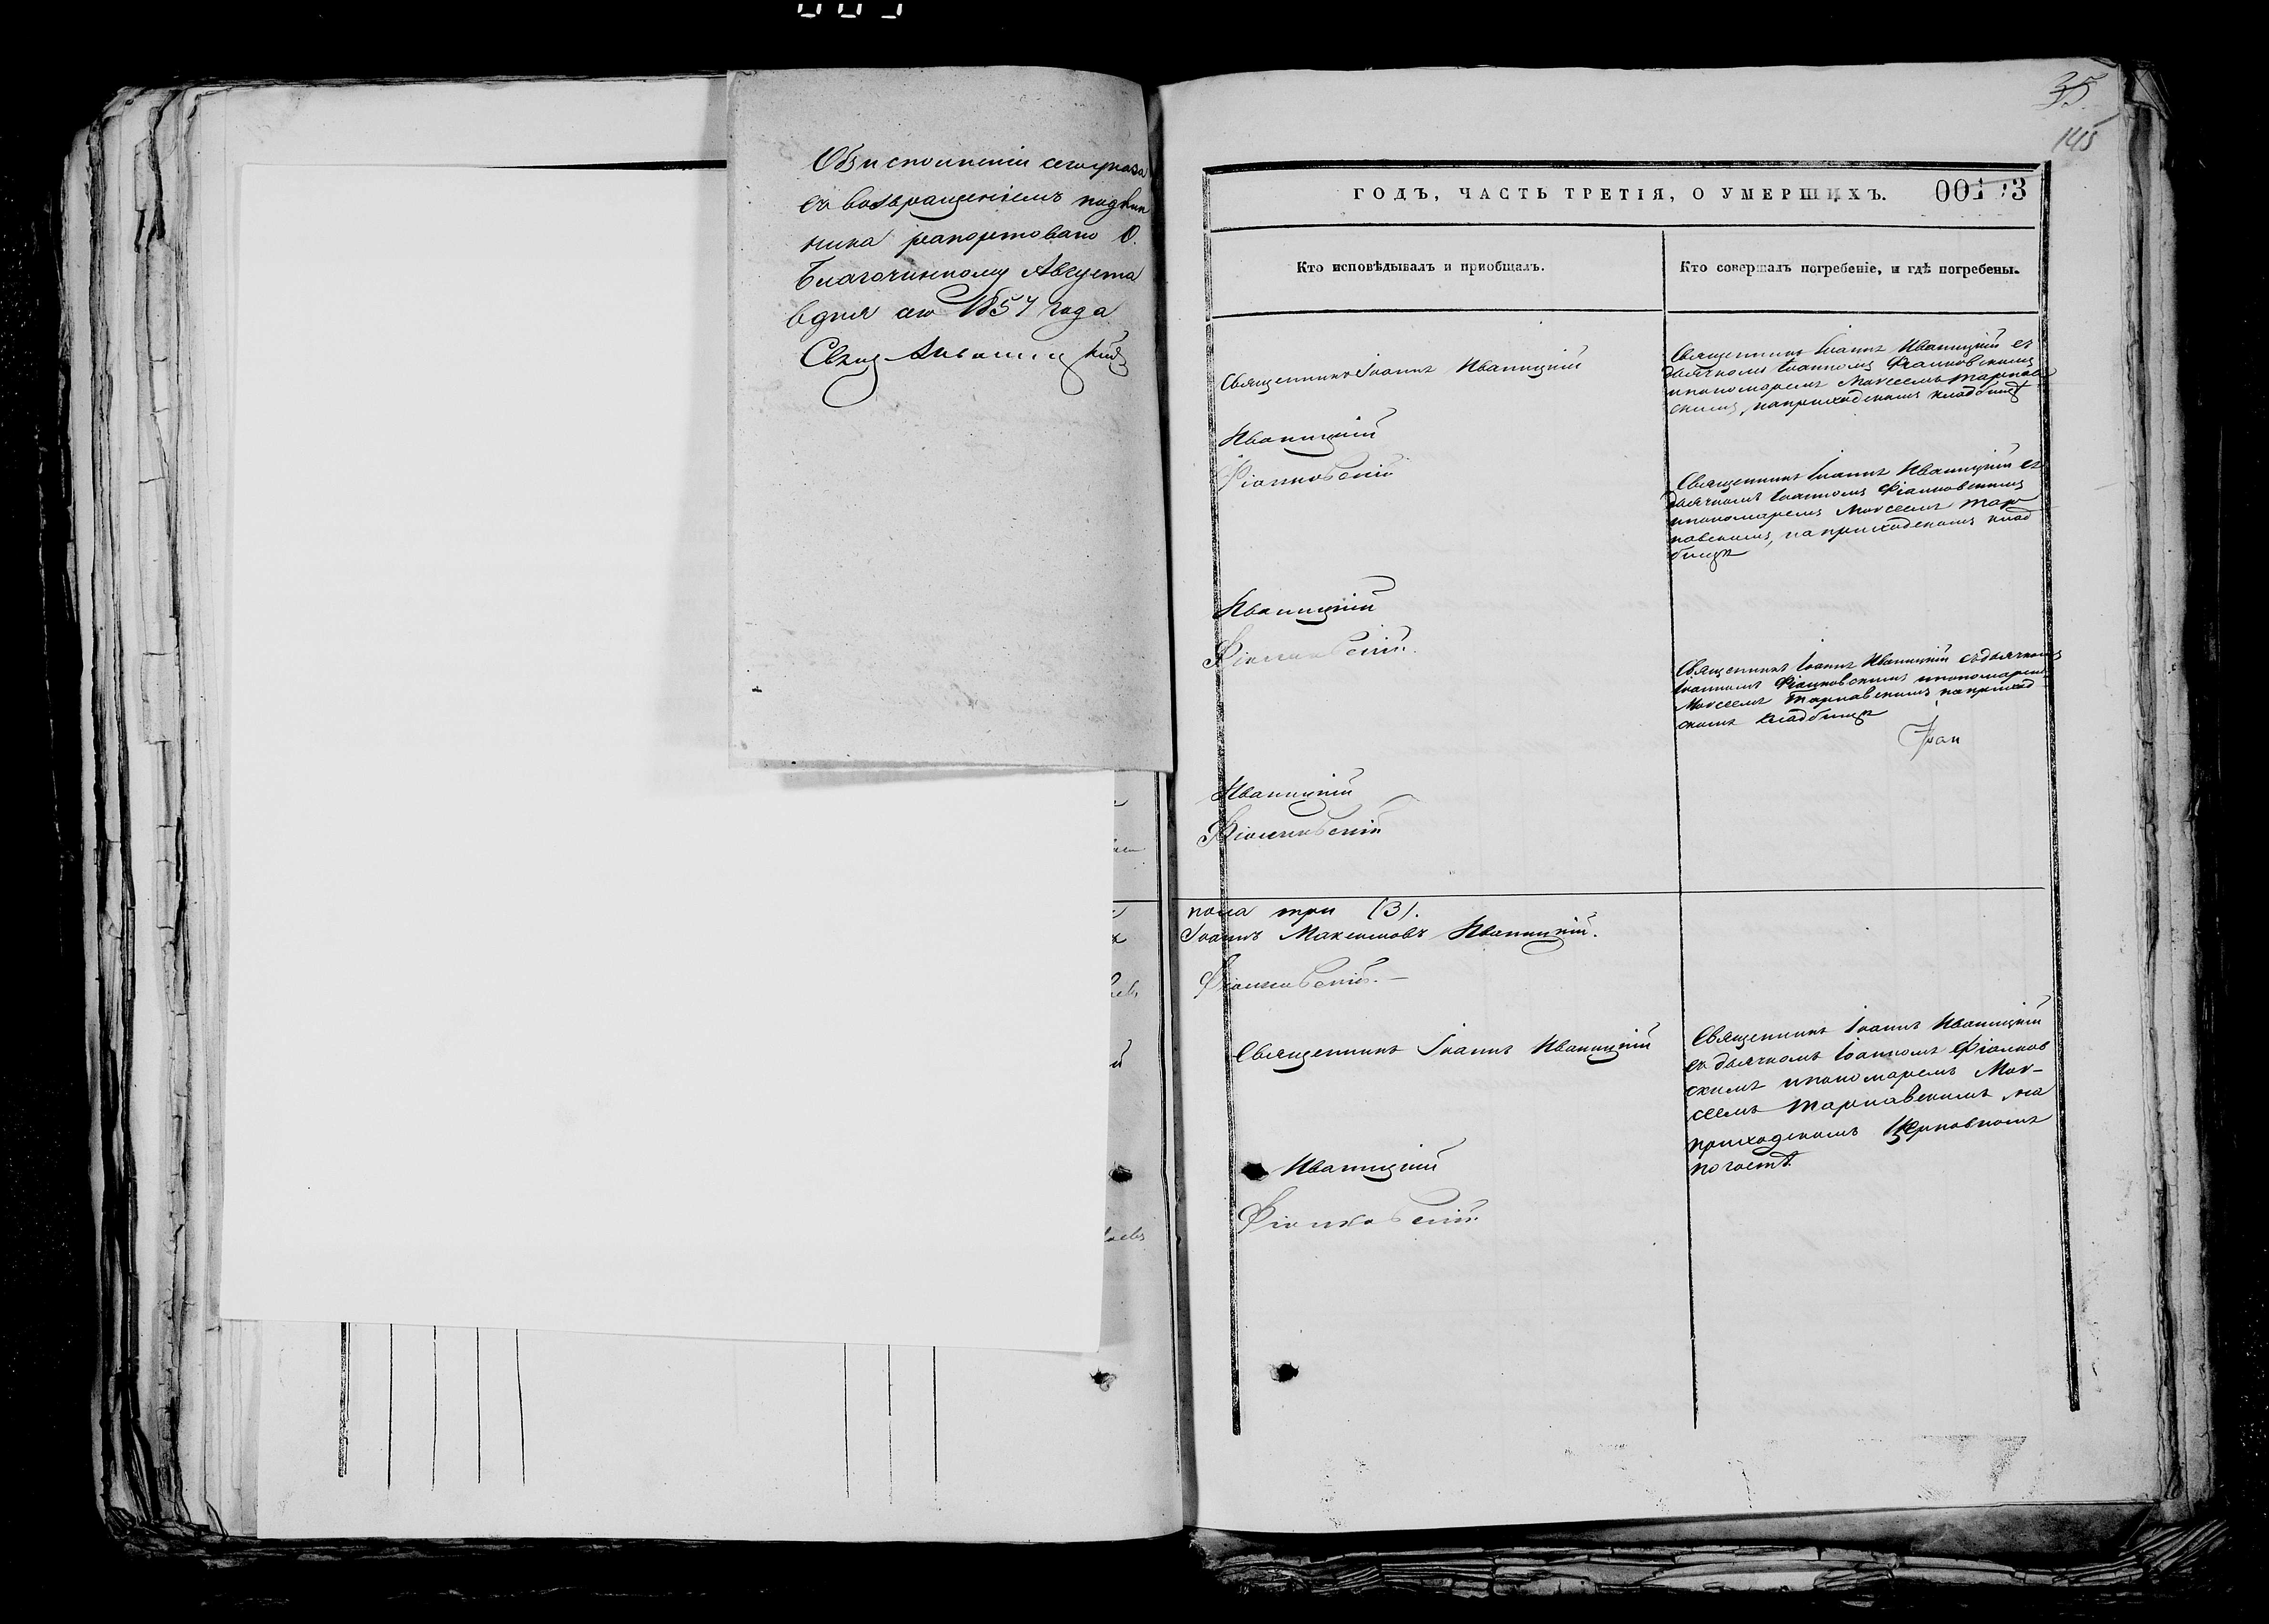 Объ исполненіи сего указа
съ возвращеніемъ подлин
ника рапортовано О.
Благочинному Августа
дня сего 1857 года
35
145
ГОДЪ, ЧАСТЬ ТРЕТІЯ, О УМЕРШИХЪ.
Кто исповѣдывалъ и приобщалъ.
Кто совершалъ погребеніе, и гдѣ погребены.
Священникъ Іоаннъ Иваницкій
Священникъ Іоаннъ Иваницкій съ
дьячкомъ Іоанномъ Фіалковскимъ
и пономаремъ Моѵсеемъ Тарнав
скимъ, на приходскомъ кладбищѣ
Иваницкій
Фіалковскій
Священникъ Іоаннъ Иваницкій съ
дьячкомъ Іоанномъ Фіалковскимъ
и пономаремъ Моѵсеемъ Тар
навскимъ, на приходскомъ клад
бищѣ
Иваницкій
Фіалковскій.
Священникъ Іоаннъ Иваницкій съ дьячкомъ
Іоанномъ Фіалковскимъ и пономаремъ
Моѵсеемъ Тарнавскимъ на приход
скомъ кладбищѣ
Иваницкій
Фіалковскій
пола три (3).
Іоаннъ Максимовъ Иваницкій.
Фіалковскій. —
Священникъ Іоаннъ Иваницкій
Священникъ Іоаннъ Иваницкій
съ дьячкомъ Іоанномъ Фіалков
скимъ и пономаремъ Моѵ-
сеемъ Тарнавскимъ на
приходскомъ Церковномъ
погостѣ.
Иваницкій
Фіалковскій